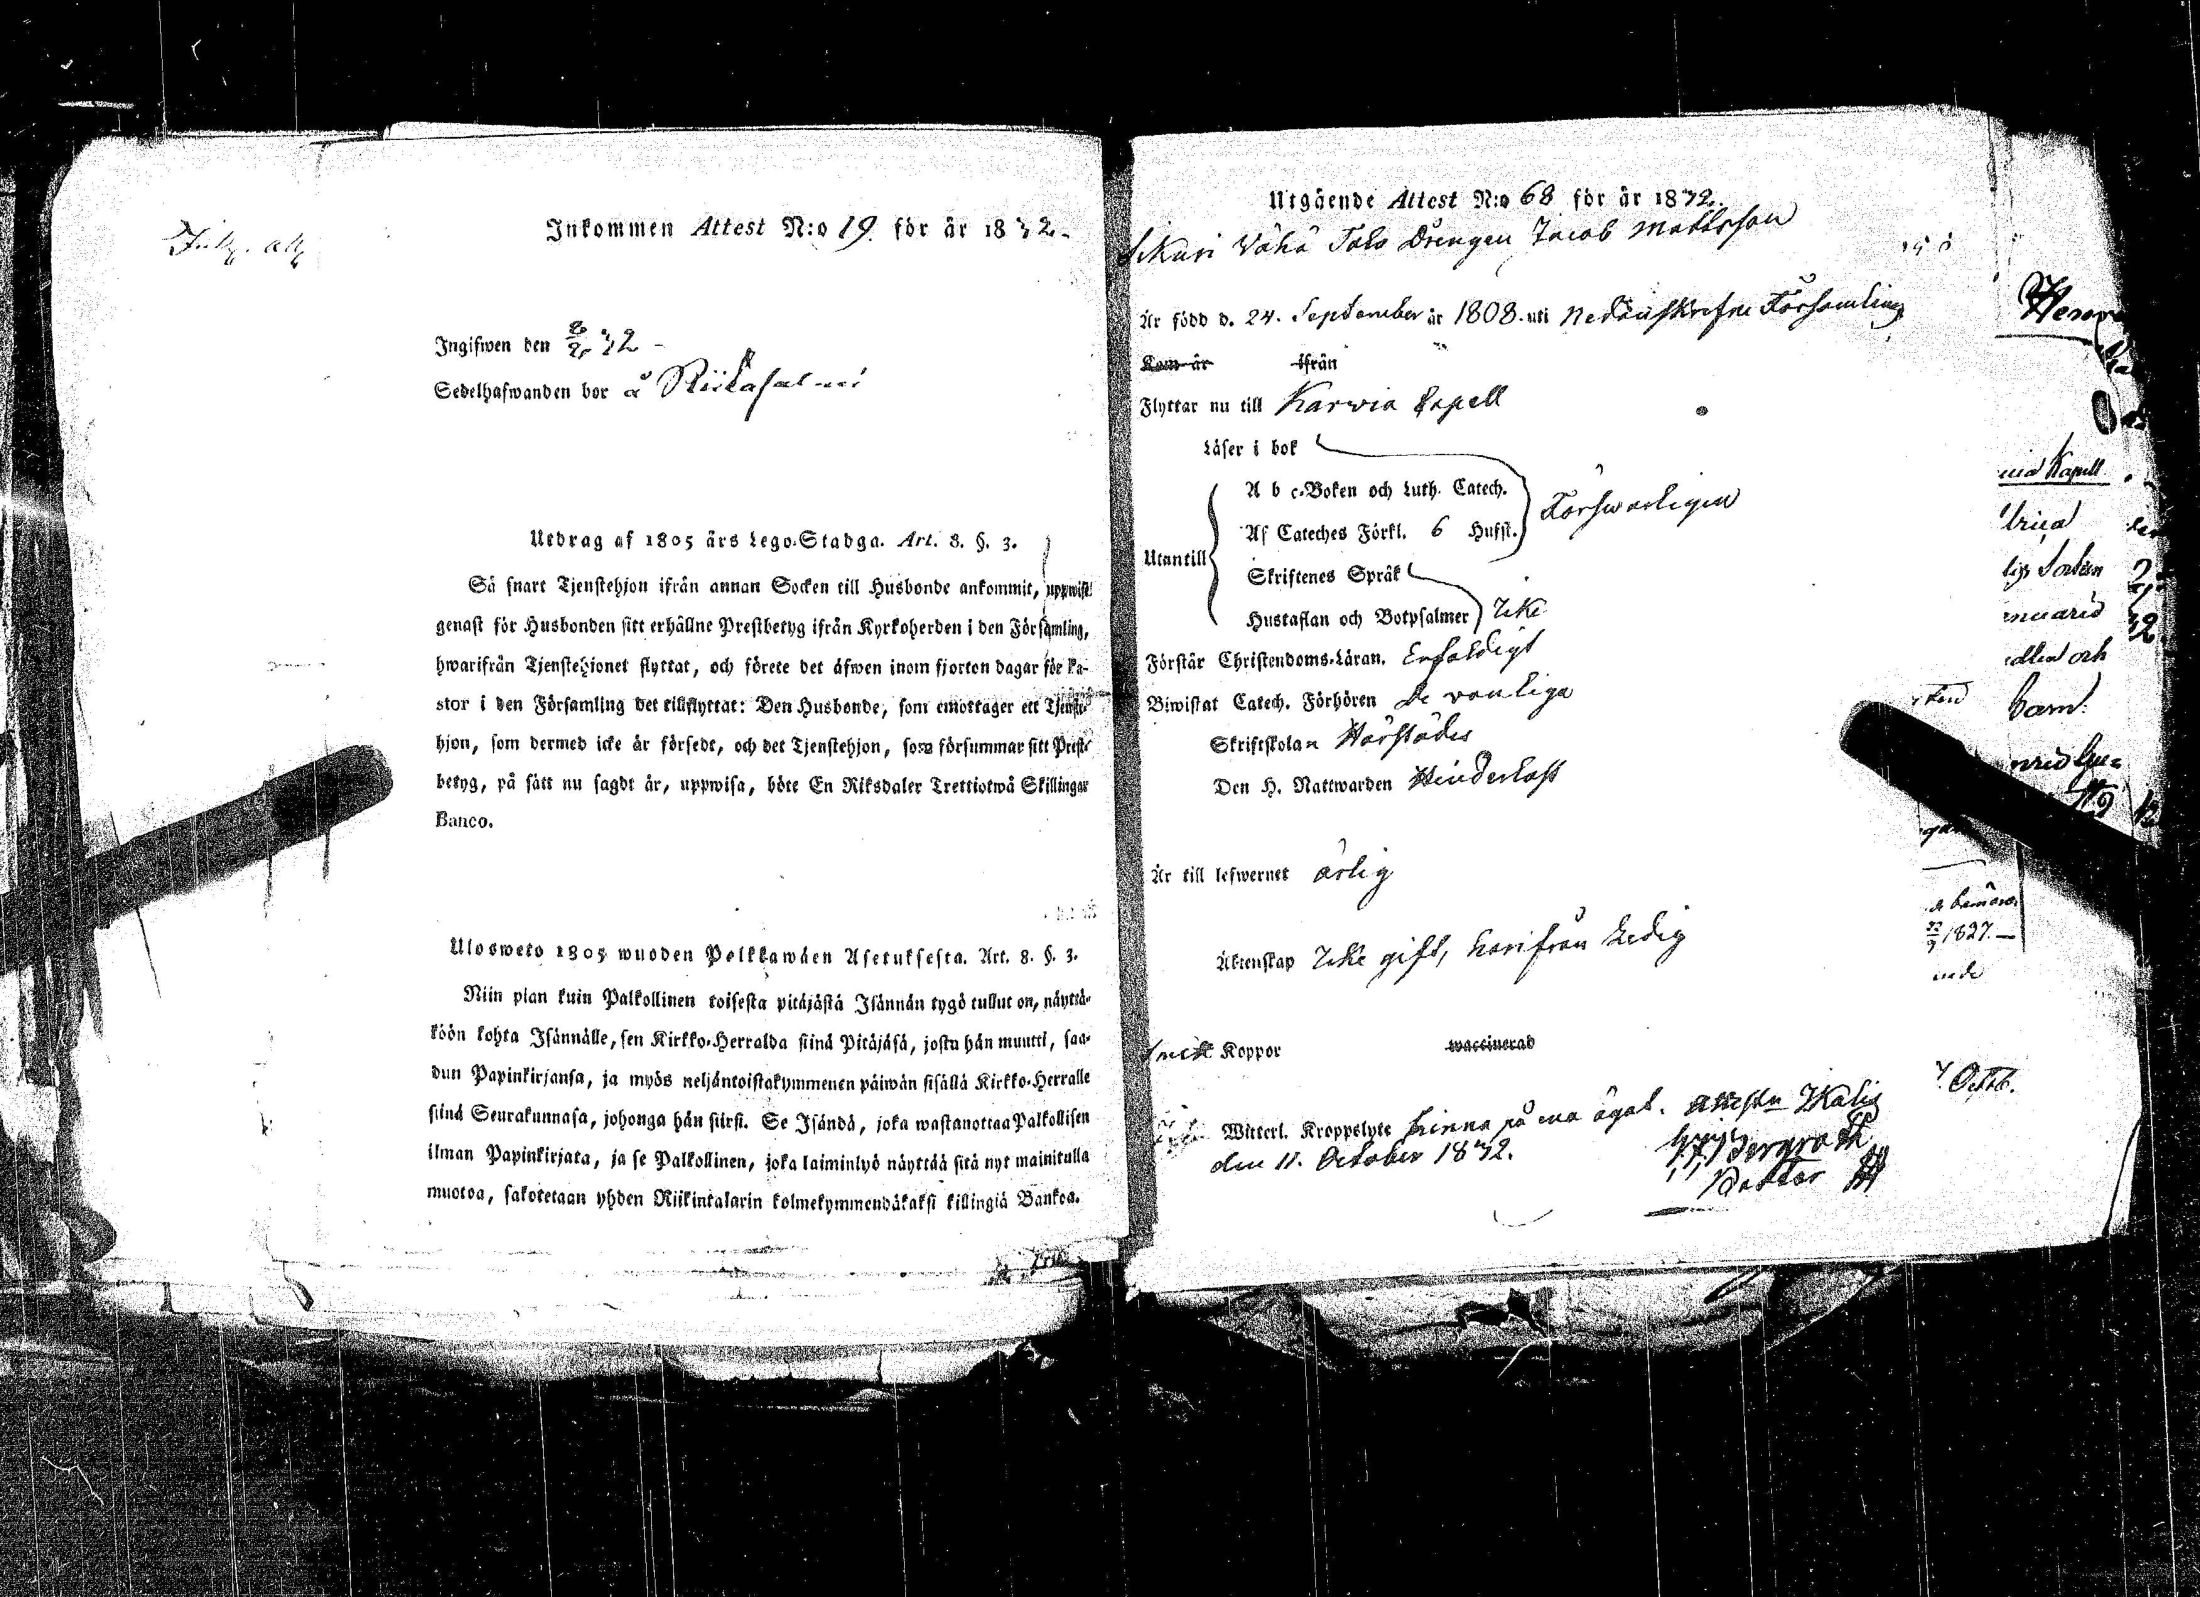 Inkommen Attest N:o 19. för år 1832.
Ingifwen den 2/2 32
Sedelhafwanden bor å
Utdrag af 1805 års Lego-Stadga. Art. 8. §. 3.
Så snart Tjenstehjon ifrån annan Socken till Husbonde ankommit, uppwise
genast för Husbonden sitt erhållne Prestbetyg ifrån Kyrkoherden i den Församling,
hwarifrån Tjenstehjonet flyttat, och förete det äfwen inom fjorton dagar för Pa-
stor i den Församling det tillflyttat: Den Husbonde, som emottager ett Tjenste-
hjon, som dermed icke är försedt, och det Tjenstehjon, som försummar sitt Prest-
betyg, på sätt nu sagdt är, uppwisa, böte En Riksdaler Trettiotwå Skillingar
Banco.
Ulosweto 1805 wuoden Palkkawäen Asetuksesta. Art. 8. §. 3.
Niin pian kuin Palkollinen toisesta pitäjästä Isännän tygö tullut on, näyttä-
köön kohta Isännälle, sen Kirkko-Herralda siinä Pitäjäsä, josta hän muutti, saa-
dun Papinkirjansa, ja myös neljäntoistakymmenen päiwän sisällä Kirkko-Herralle
siinä Seurakunnasa, johonga hän siirsi. Se Isändä, joka wastanottaa Palkollisen
ilman Papinkirjata, ja se Palkollinen, joka laiminlyö näyttää sitä nyt mainitulla
muotoa, sakotetaan yhden Riikintalarin kolmekymmendäkaksi killingiä Bankoa.
Utgående Attest N:o 68 för år 1832.
Wähä Talo Drengen Jacob Mattsson
Är född d. 24. September år 1808. uti nedanskrefne Församling
Kom år ifrån
Flyttar nu till Karwia Capell
Läser i bok
A b c-Boken och Luth. Catech.
Förswarligen
Af Cateches Förkl. 6 Hufst.
Utantill
Skriftenes Språk
Hustaflan och Botpsalmer Icke
Förstår Christendoms-Läran. Enfaldigt
Biwistat Catech. Förhören De wanliga
Skriftskolan Härstädes
Den H. Nattwarden Hinderlöst
Är till lefwernet ärlig
Äktenskap Icke gift, härifrån Ledig
Koppor waccinerad
Witterl. Kroppslyte hinna på ena ögat. Attestn Ikalis
den 11. October 1832.
Pastor
Kapell
barn.
1827.
Octob.